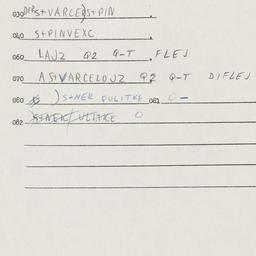 030 S+VARCE)S+PIN
040 S+PINVEXC
060 LAJZ Q2 Q-T FLEJ
070 AS+VARCELOJZ Q2 Q-T DIFLEJ
080 )S+NEK OULITKE 081 0-
082 S+NEK/ULITKE 0